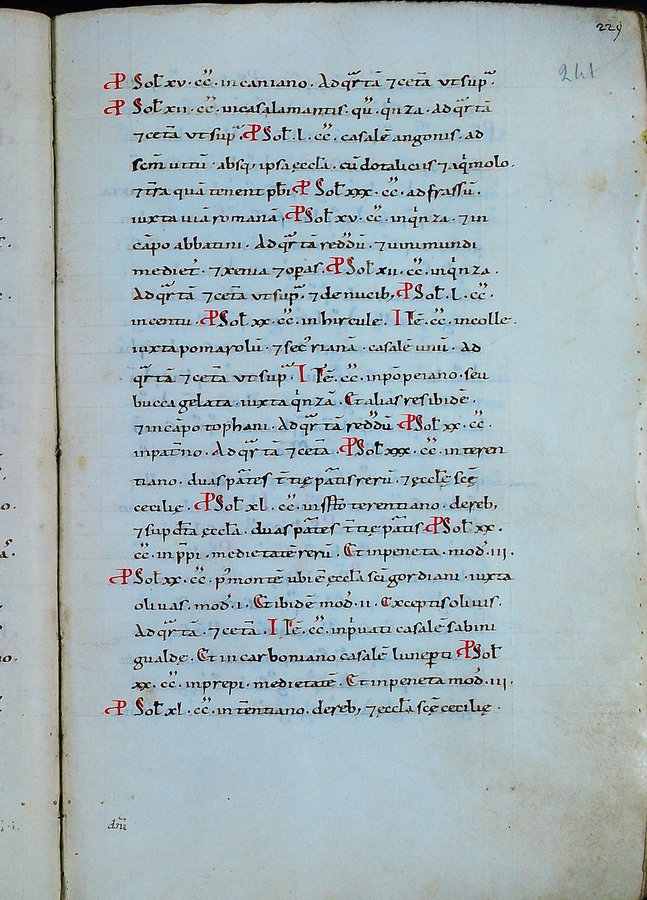 229
241
P Sol xv · cc · in caniano · Ad qrtā ⁊ cetā ut sup
P Sol xii · cc · in casalamantis · qu · qnza · ad qrtā
⁊ cetā ut sup · P Sol · l · cc · casalē angonis · ad
scm uittū · absq; ipsa ęccla · cū dotaliciis ⁊ aq̇molo ·
⁊ tr̄a quā tenent pbi P Sol xxx · cc · ad frassū ·
iuxta uiā romanā · P Sol xv · cc · in qnza · ⁊ in
cāpo abbatini · Ad qrtā reddū · ⁊ uini mundi
mediet · ⁊ xenia ⁊ opas · P Sol xii · cc · in qnza ·
Ad qrtā ⁊ cetā ut sup · ⁊ de nucib; P Sol · l · cc ·
in centu · P Sol xx · cc · in hircule · I Tē · cc · in colle ·
iuxta pomarolū · ⁊ sec rianā · casalē unū · ad
qrtā ⁊ cetā ut sup · I Tē · cc · in pōpeiano · seu
bucca gelata · iuxta qnzā · Et alias res ibidē ·
⁊ in cāpo tophani · Ad qrtā reddū · P Sol xx · cc ·
in patno · Ad qrtā ⁊ cetā · P Sol xxx · cc · in teren
tiano · duas pātes t̄tię pātis rerū · ⁊ ęcclę scę
cecilię · P Sol xl · cc · in ssto terentiano · de reb;
⁊ sup dcta ęccla · duas pātes t̄tię pātis · P Sol xx ·
cc · in ppi · medietatē rerū · Et in peneta · mod · iii ·
P Sol xx · cc · p montē ubi ē ęccla sci gordiani · iuxta
oliuas · mod · i · Et ibidē mod · ii · Exceptis oliuis ·
Ad qrtā · ⁊ cetā · I Tē · cc · in puati casalē sabini
gualdę · Et in carboniano casalē lunepti P Sol
xx · cc · in prepi · medietatē · Et in peneta mod · iii ·
P Sol xl · cc · in tēntiano · de reb; ⁊ ęccla scę cecilię ·
dni